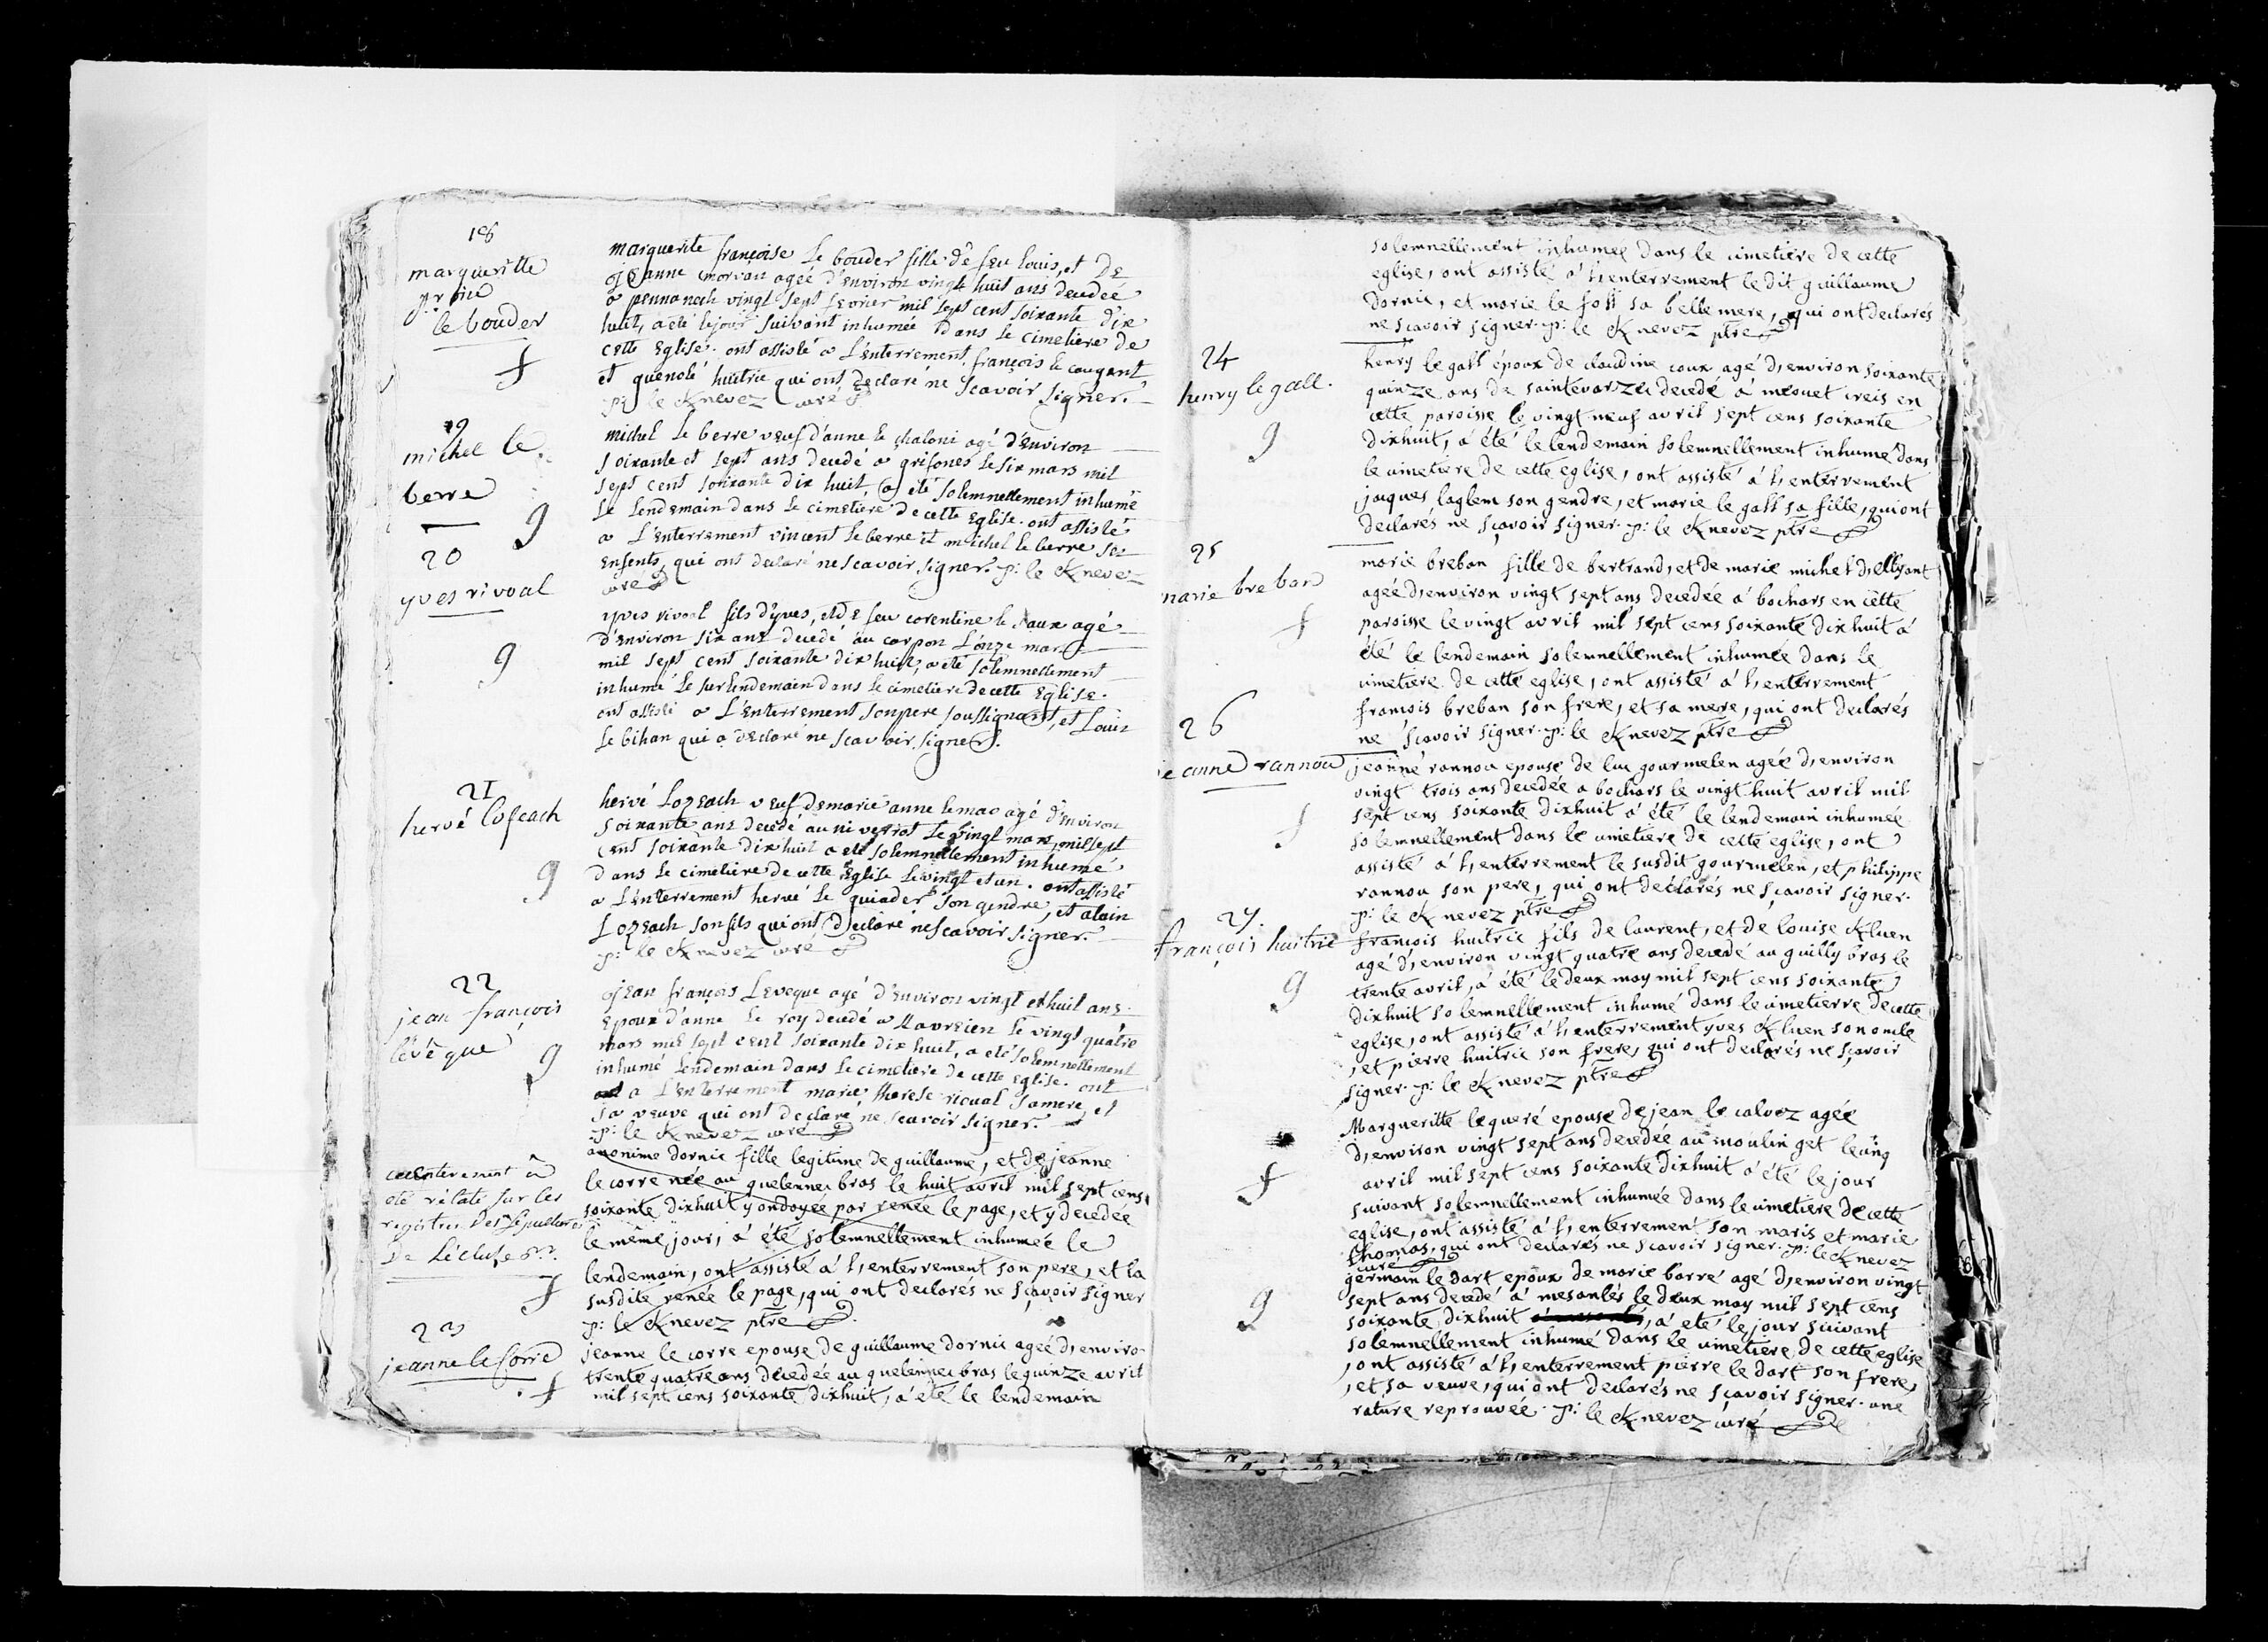 18
margueritte
le bouder
f
marguerite françoise Le bouder fille de feu Louis, et De
jeanne morvan ageé d'Environ vingt huit ans decedeé
a pennanech vingt sept fevrier mil sept cent soixante dix
huit, a eté le jour suivant inhumée dans le cimetiere de
cette Eglise. ont assisté a L'enterrement françois le caugant
et guenolé huitric qui ont declaré ne scavoir signer.
p: le Knevez curé
19
michel le
berre
g
michel Le berre veuf d'anne le chaloni agé d'Environ
soixante et sept ans decedé a grifones le six mars mil
sept cent soixante dix huit, a eté solemnellement inhumé
Le Lendemain dans Le cimetiere de cette Eglise. ont assisté
a L'enterrement vincent le berre et michel le berre ses
Enfents, qui ont declaré ne scavoir signer. p: le Knevez
curé
20
yves rivoal
g
yves rivoal fils d'yves, et de feu corentine le faux agé
d'Environ six ans decedé au corpon L'onze mars
mil sept cent soixante dix huit, a eté solemnellement
inhumé Le surlendemain dans le cimetiere de cette Eglise.
ont assisté a L'Enterrement son pere soussignant, et Louis
Le bihan qui a declaré ne scavoir signer.
21
hervé Lozeach
g
hervé Lozeach veuf de marie anne le mao agé d'Environ
soixante ans decedé au Le vingt mars, mil sept
cent soixante dix huit a eté solemnellement inhumé
dans Le cimetiere de cette Eglise Le vingt et un. ont assisté
a L'Enterrement hervé Le quiader son gendre, et alain
Lozeach son fils qui ont declaré ne scavoir signer.
p: le Knevez curé
22
jean françois
lévêque
g
jean françois Leveque agé d'Environ vingt et huit ans
Epoux d'anne Le roy decedé a Le vingt quatre
mars mil sept cent soixante dix huit, a eté solemnellement
inhumé Lendemain dans Le cimetiere de cette Eglise. ont
a L'Enterrement marie therese ricual sa mere, et
sa veuve qui ont declaré ne scavoir signer.
p: le Knevez curé
cet enterement a
eté relaté sur les
registres des sepultures
De
f
anonime dornic fille legitime de guillaume, et de jeanne
le corre née au quelennec bras le huit avril mil sept cens
soixante dixhuit y ondoyée par renée le page, et y decedée
le même jour, á été solemnellement inhumée le
lendemain, ont assisté á l'enterrement son pere, et la
susdite renée le page, qui ont declarés ne sçavoir signer
p: le Knevez ptre
23
jeanne le Corre
f
jeanne le corre epouse de guillaume dornic ageé d'environ
trente quatre ans decedée au quelennec bras le quinze avril
mil sept cens soixante dixhuit, á été le lendemain
solemnellement inhumée dans le cimetiere de cette
eglise, ont assisté á l'enterrement le dit guillaume
dornic, et marie le foll sa belle mere, qui ont declarés
ne sçavoir signer. p: le Knevez ptre
24
henry le gall.
g
henry le gall époux de claudine coux agé d'environ soixante
quinze ans de saintevarzec decedé á creis en
cette paroisse le vingt neuf avril sept cens soixante
dixhuit, á été le lendemain solemnellement inhumé dans
le cimetiere de cette eglise, ont assisté á l'enterrement
jaques laglem son gendre, et marie le gall sa fille, qui ont
declarés ne sçavoir signer. p: le Knevez ptre
25
marie breban
f
marie breban fille de bertrand, et de marie michel d'ellyant
ageé d'environ vingt sept ans decedée á bochars en cette
paroisse le vingt avril mil sept cens soixante dixhuit á
été le lendemain solemnellement inhumée dans le
cimetiere de cette eglise, ont assisté á l'enterrement
francois breban son frere, et sa mere, qui ont declarés
ne sçavoir signer. p: le Knevez ptre
26
jeanne rannou
f
jeanne rannou epouse de luc gourmelen agée d'environ
vingt trois ans decedée a bochars le vingt huit avril mil
sept cens soixante dixhuit á été le lendemain inhumée
solemnellement dans le cimetiere de cette eglise, ont
assisté á l'enterrement le susdit gourmelen, et philippe
rannou son pere, qui ont declarés ne sçavoir signer.
p: le Knevez ptre
27.
françois huitric
g
francois huitric fils de laurent, et de louise Kluen
agé d'environ vingt quatre ans decedé au guilly bras le
trente avril, á été le deux may mil sept cens soixante
dixhuit solemnellement inhumé dans le cimetierre de cette
eglise, ont assisté á l'enterrement yves Kluen son oncle
, et pierre huitric son frere, qui ont declarés ne sçavoir
signer. p: le Knevez ptre
f
Margueritte le queré epouse de jean le calvez agée
d'environ vingt sept ans decedée au moulin get le cinq
avril mil sept cens soixante dixhuit á été le jour
suivant solemnellement inhumée dans le cimetiere de cette
eglise, ont assisté á l'enterrement son maris et marie
thomas, qui ont declarés ne scavoir signer. p: le Knevez
curé
g
germain le dart epoux de marie barré agé d'environ vingt
sept ans decedé á mesanlés le deux may mil sept cens
soixante dixhuit , á eté le jour suivant
solemnellement inhumé dans le cimetiere de cette eglise
, ont assisté á l'enterrement pierre le dart son frere,
, et sa veuve, qui ont declarés ne sçavoir signer. une
rature reprouvée. p: le Knevez curé